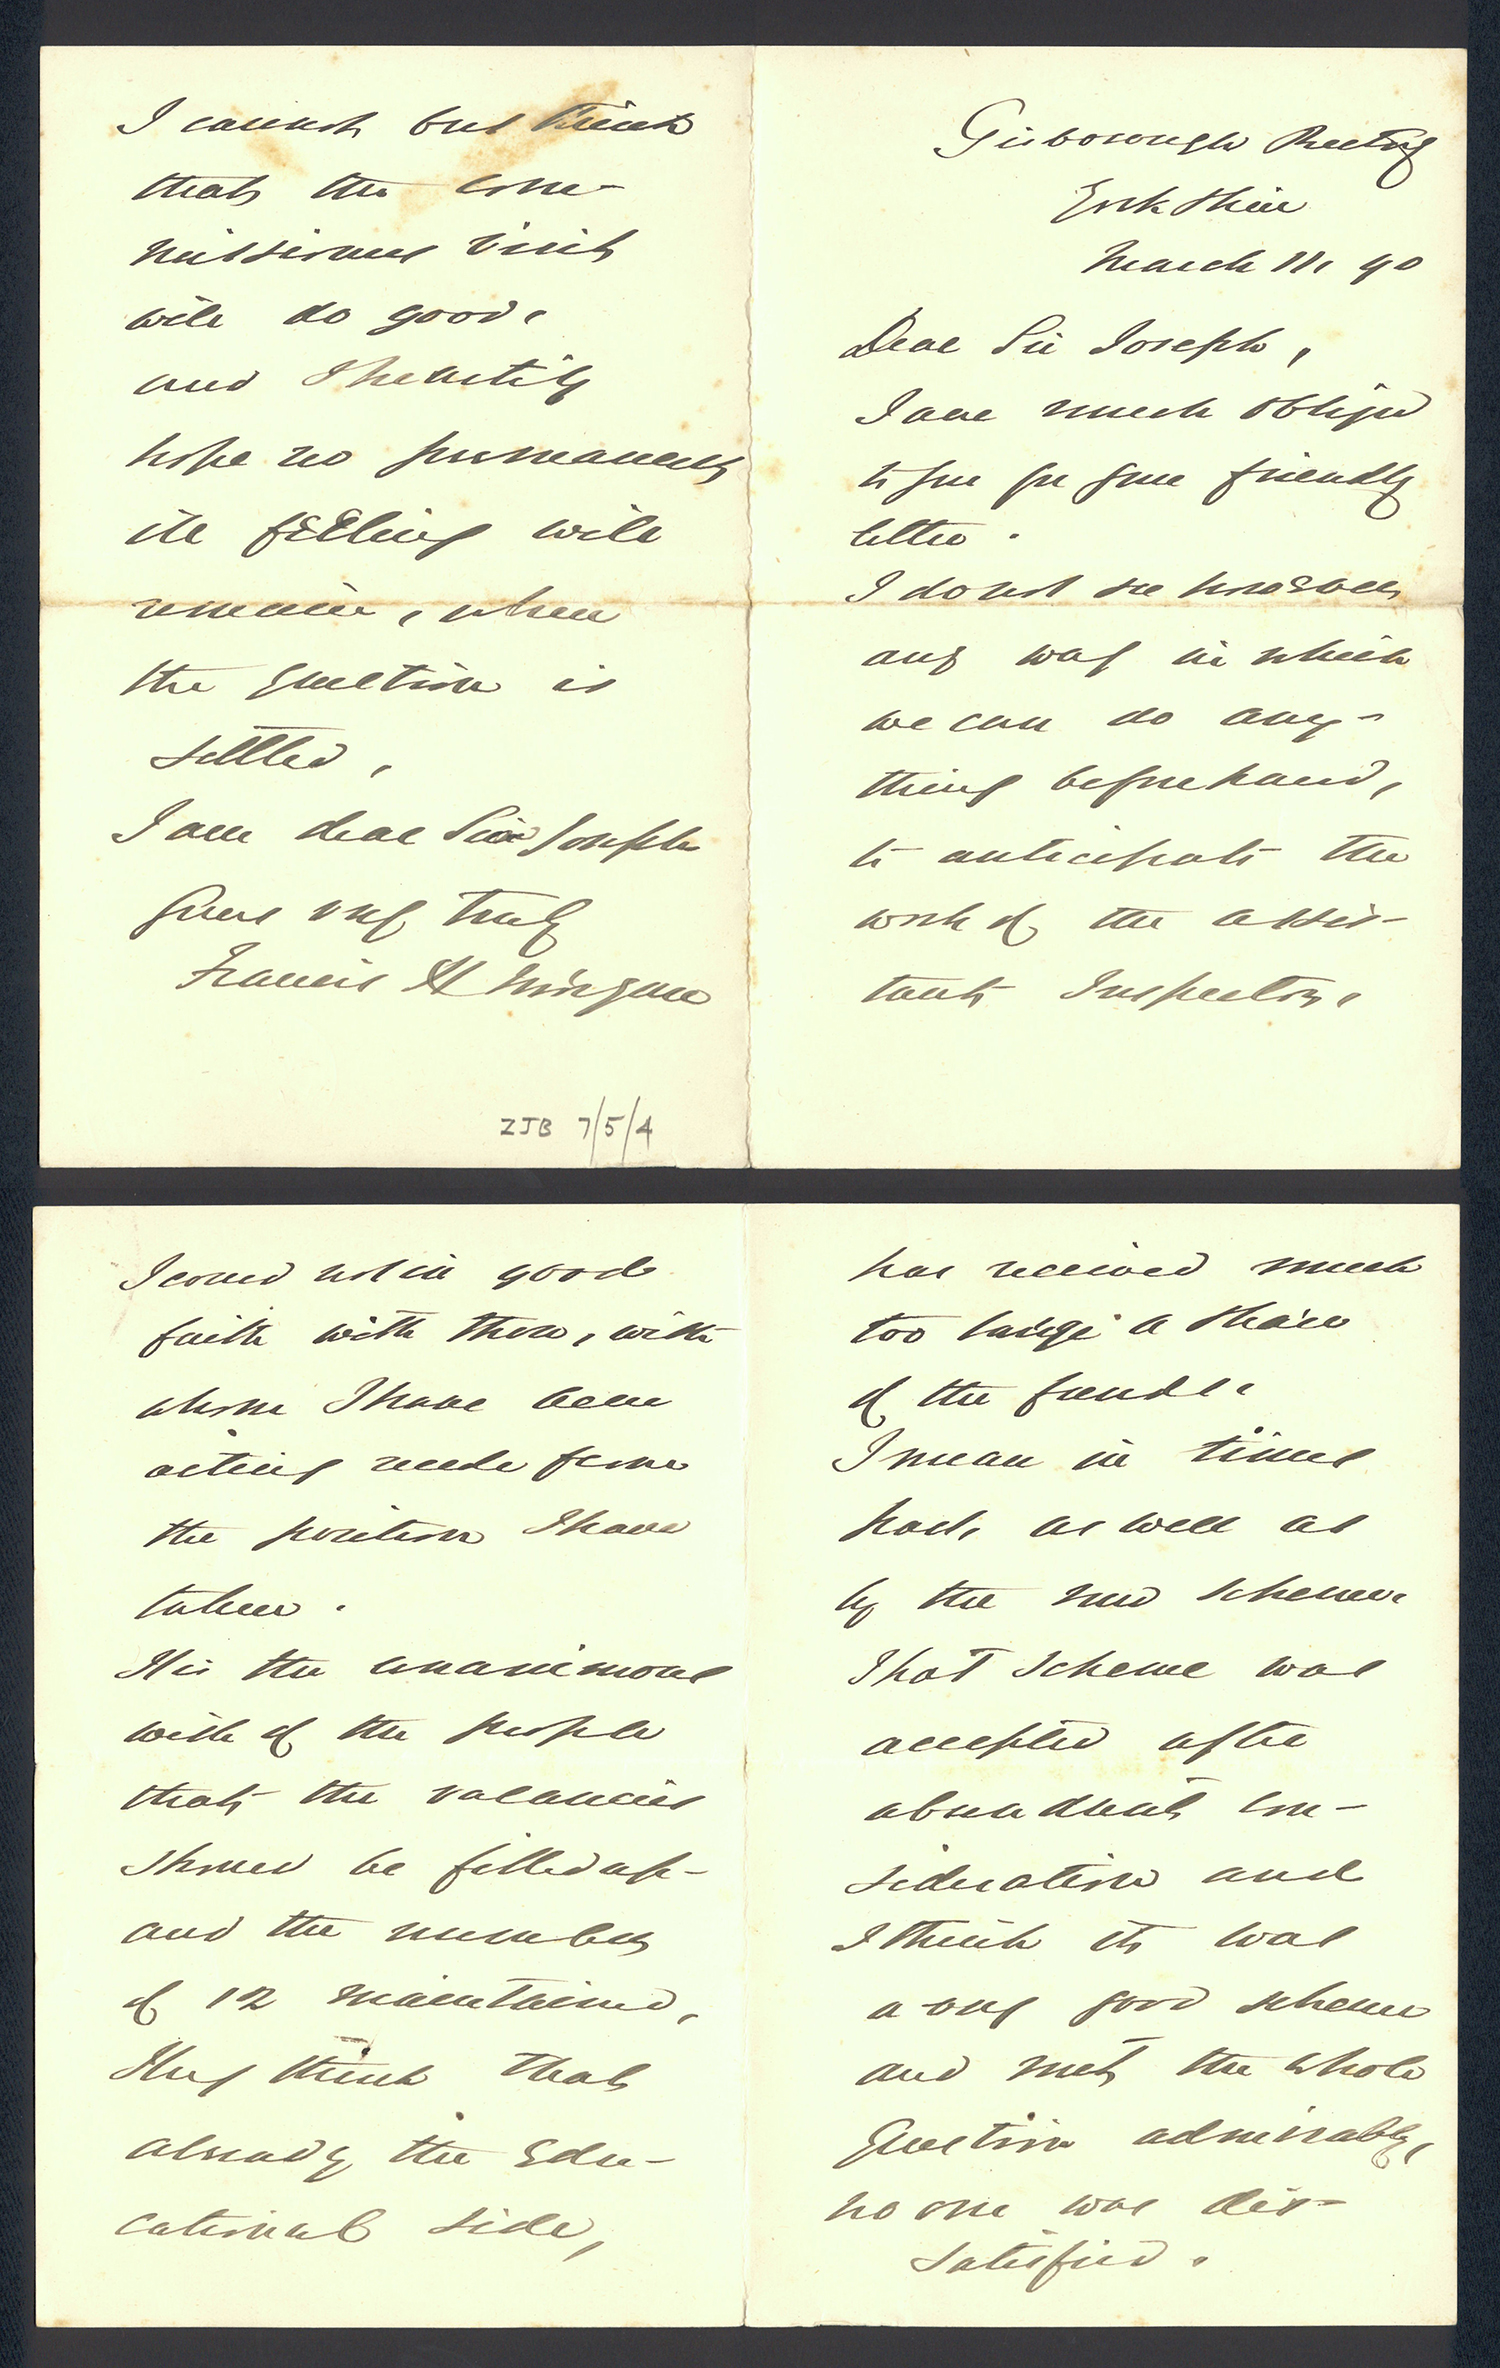 Gisborough Rectory
Yorkshire
March 11, 90
Dear Sir Joseph,
I am much obliged
to you for your friendly
letter.
I do not see however
any way in which
we can do any-
thing beforehand,
to anticipate the
work of the assis-
tant Inspector,
I could not in good
faith with those, with
whom I have been
acting recede from
the position I have
taken.
It is the unanimous
wish of the people
that the vacancies
should be filled up-
and the number
of 12 maintained,
They think that
already the Edu-
cational side,
has received much
too large a share
of the funds.
I mean in times
past, as well as
by the new scheme.
That scheme was
accepted after
abundant con-
sideration and
I think it was
a very good scheme
and met the whole
question admirably,
no one was dis-
satisfied.
I cannot but think
that the Com-
missioners visit
will do good.
and I heartily
hope no permanent
ill feeling will
remain, when
the question is
settled,
I am dear Sir Joseph
Yours very truly
Francis H Morgan
ZJB 7/5/4